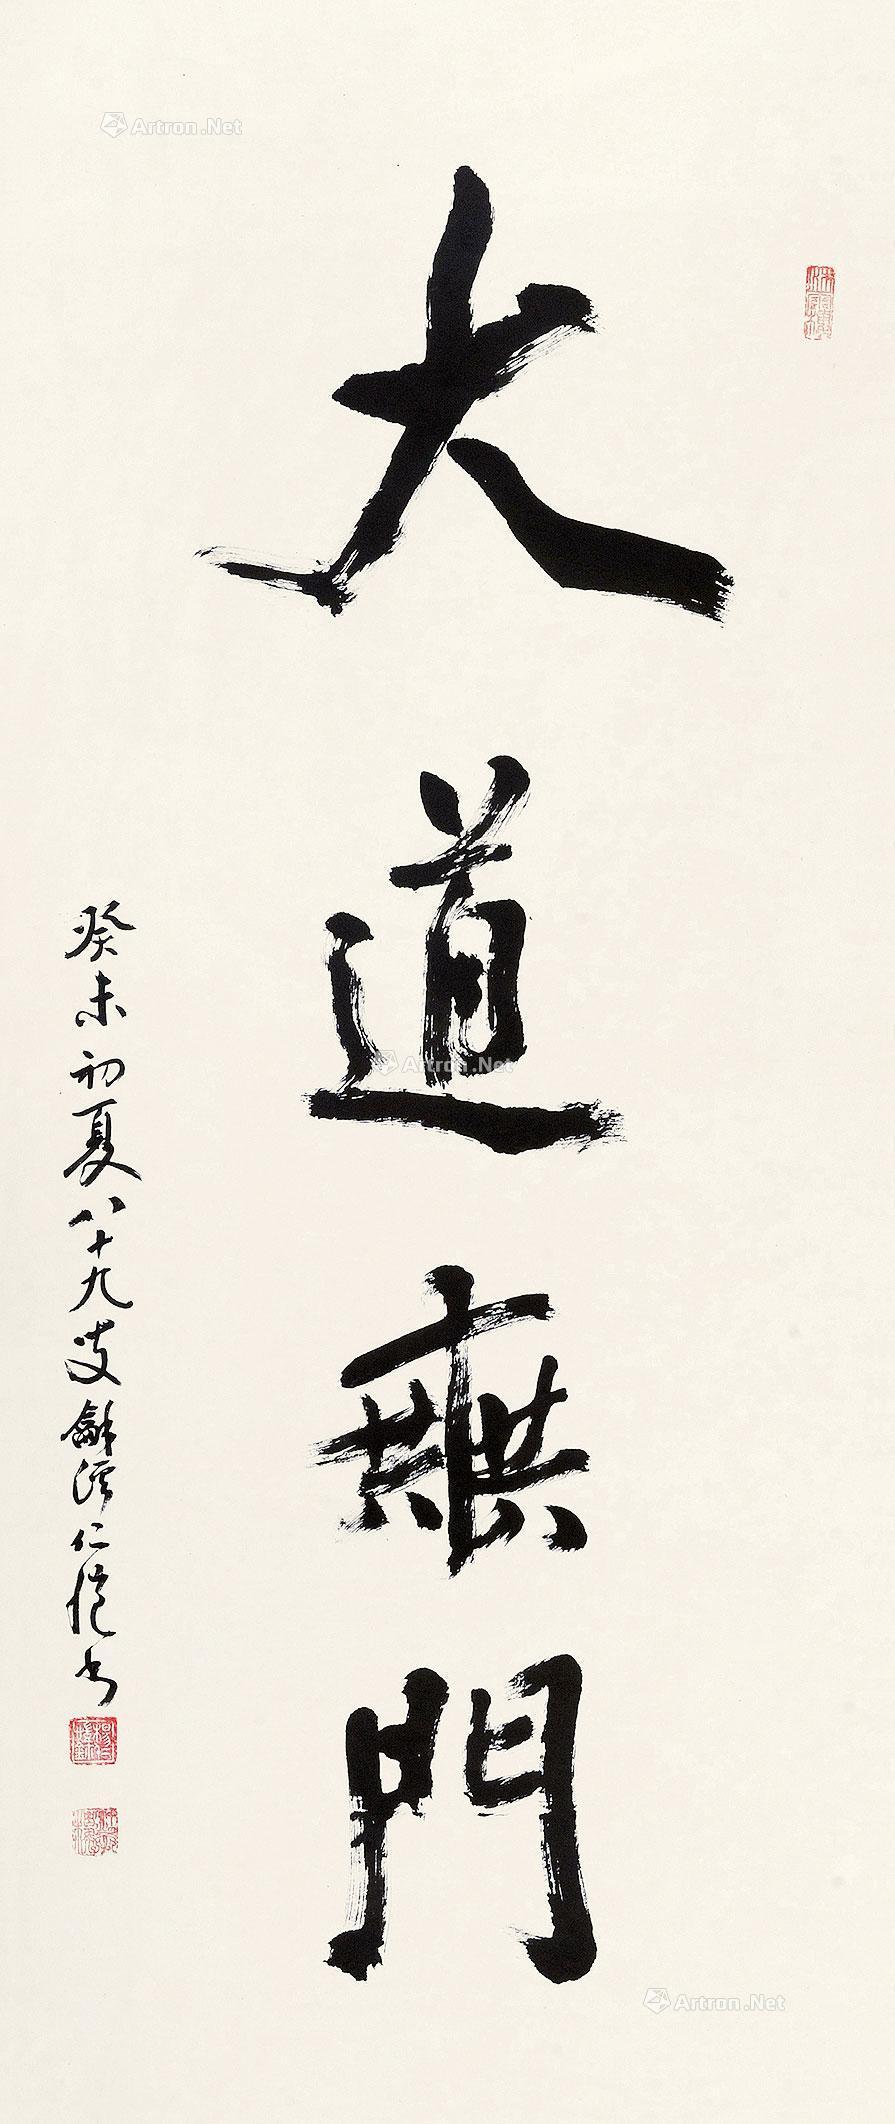 大道無門
癸未初夏八十九叟龢溪仁愷書
Artron.Net
Artron.Net
Artron.Net